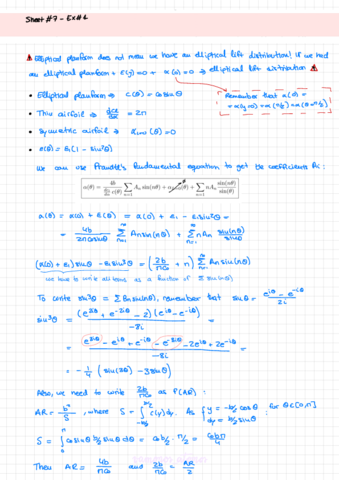 Sheet #7 - Ex #1
⚠ Elliptical planform does not mean we have an elliptical lift distribution! If we had
an elliptical planform + ε(y)=0 + α(0)=0 ⇒ elliptical lift distribution ⚠
• Elliptical planform ⇒ c(θ) = c₀ sinθ
Remember that α(0) =
• Thin airfoil ⇒ dcl/dα = 2π
• Symmetric airfoil ⇒ αL=0(θ) = 0
• ε(θ) = ε₁(1 - sin²θ)
We can use Prandtl's fundamental equation to get the coefficients Ai:
α(θ) = α(0) + ε(θ) = α(0) + ε₁ - ε₁ sin²θ =
= 4b/2πc₀sinθ Σ An sin(nθ) + Σ nAn sin(nθ)/sinθ
(α(0) + ε₁) sinθ - ε₁ sin³θ = Σ (2b/πc₀ + n) An sin(nθ)
we have to write all terms as a function of Σ sin(nθ)
To write sin³θ = Σ Bn sin(nθ), remember that sinθ = (e^iθ - e^-iθ)/2i
sin³θ = (e^2iθ + e^-2iθ - 2)(e^iθ - e^-iθ)/-8i =
= (e^3iθ - e^iθ + e^-iθ - e^-3iθ - 2e^iθ + 2e^-iθ)/-8i =
= - 1/4 (sin(3θ) - 3sinθ)
Also, we need to write 2b/πc₀ as f(AR):
AR = b²/S, where S = ∫ c(y)dy. As { y = -b/2 cosθ ; for θ∈[0,π]
dy = b/2 sinθ
S = ∫ c₀ sinθ b/2 sinθ dθ = c₀ b/2 · π/2 = c₀bπ/4
Then AR = 4b/πc₀ and 2b/πc₀ = AR/2